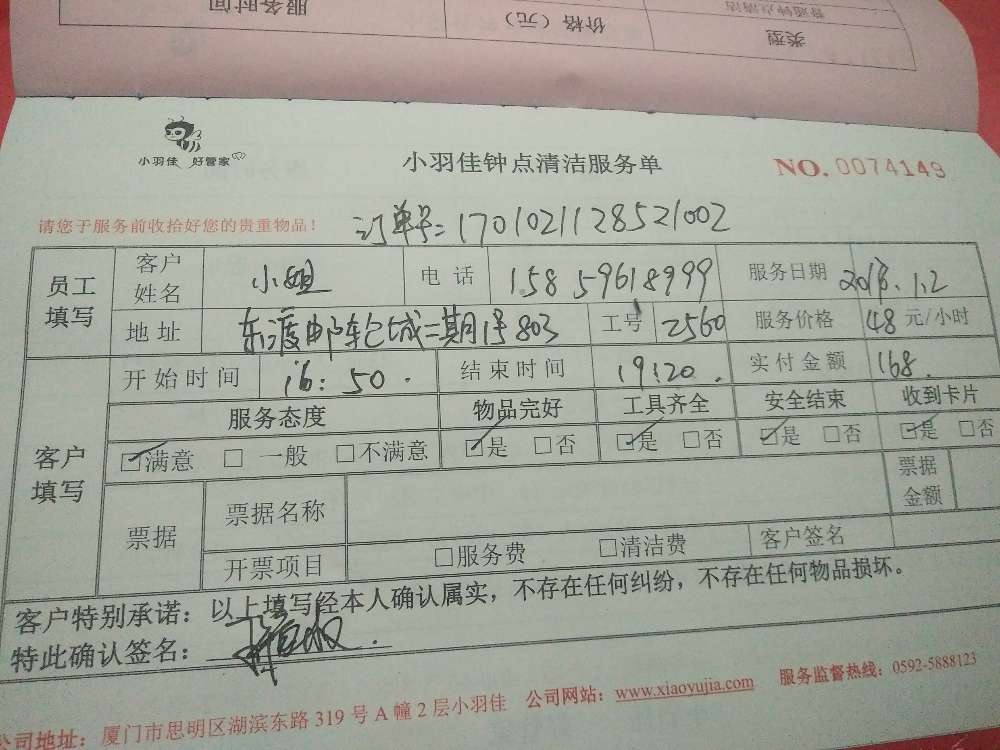 服务时间
价格（元）
类型
普通钟点清洁
小羽佳 好管家
小羽佳钟点清洁服务单
NO. 0074149
请您于服务前收拾好您的贵重物品！
订单号：1701021128521002
员工填写
客户姓名
小姐
电话
15859618999
服务日期
2017.1.2
地址
东渡邮轮城二期1号803
工号
2560
服务价格
48元/小时
客户填写
开始时间
16:50.
结束时间
19:20.
实付金额
168.
服务态度
物品完好
工具齐全
安全结束
收到卡片
☑满意 □一般 □不满意
☑是 □否
☑是 □否
☑是 □否
☑是 □否
票据
票据名称
票据金额
开票项目
□服务费 □清洁费
客户签名
客户特别承诺：以上填写经本人确认属实，不存在任何纠纷，不存在任何物品损坏。
特此确认签名：
公司地址：厦门市思明区湖滨东路 319 号 A 幢 2 层小羽佳 公司网站：www.xiaoyujia.com 服务监督热线：0592-5888123